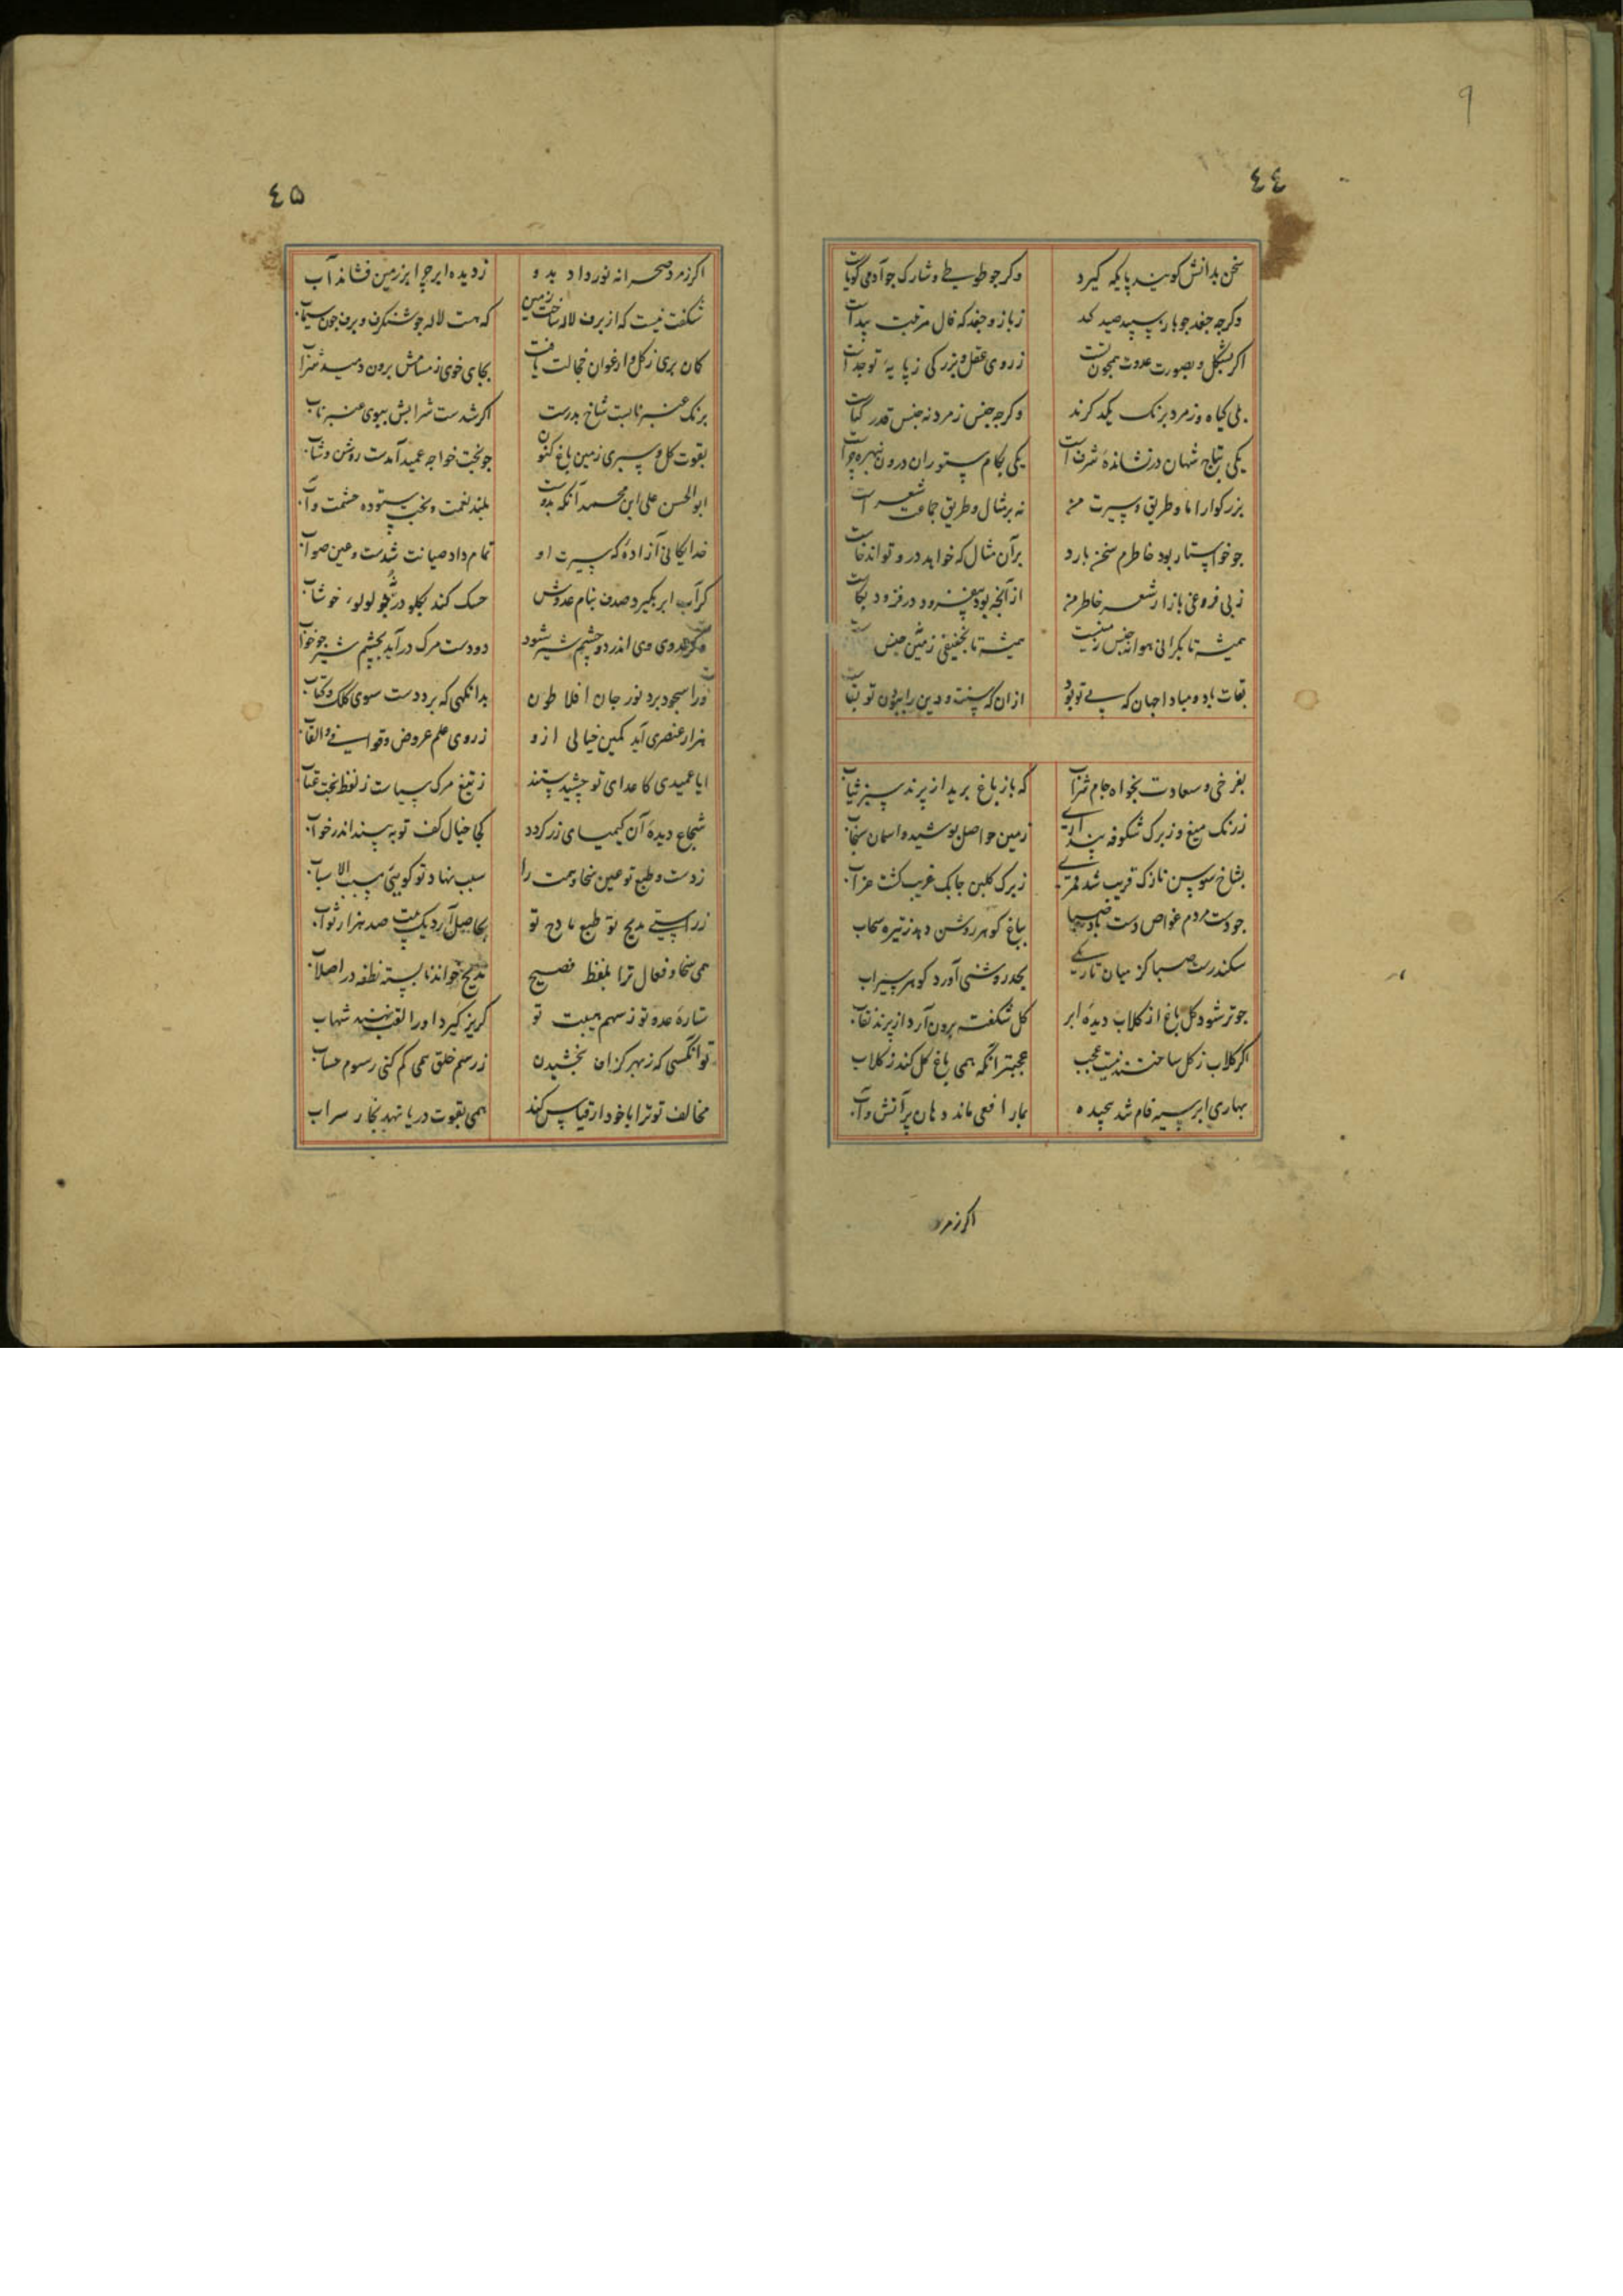 ٤٤
سخن بدانش کویند پایکه کیرد وکر جو طوطی و شارک جو آدمی گویاست
وکرجه جغد جو باز سپید صید کند ز باز و جغد که فال مرتبت پیداست
اکر بشکل و بصورت عدوت همچون تست ز روی عقل و بزرکی ز پایه تو جداست
بلی کیاه و زمرد برنک یکد کرند وکرجه جنس زمرد نه جنس قدر کیاست
یکی بتاج شهان در نشانده شرف است یکی بکام ستوران درون
بزرکوارا اما وطریق و سیرت من نه بر مثال وطریق جماعت شعراست
جو خواستار بود خاطرم سخن بارد بر آن مثال که خواهد در و تواند خاست
ز بی فروغی بازار شعر خاطر من از آنچه بود نیفزود در فزود بکاست
همیشه تا بکرانی هوا نه جنس زمینست همیشه تا بخفیفی زمین نه جنس
بقات باد و مباد اجهان که بی تو بود ازان که سنت و دین را بدون تو بقاست
بفرخی وسعادت بخواه جام شراب که باز باغ برید از پرند سبز ثیاب
زرنک میغ و زبرک شکوفه پنداری زمین حواصل پوشید و اسمان سنجاب
بشاخ سوسن نازک قریب شد قمری زبرک کلبن جابک غریب کشت غراب
جو دست مردم غواص دست باد صبا بباغ کوهر روشن دهد ز تیره سحاب
سکندرست صبا کز میان تاریکی بحد روشنی آورد کوهر سیراب
جو تر شود کل باغ از کلاب دیده ابر کل شکفته برون آرد از پرند نقاب
اکر کلاب ز کل ساختند نیست عجب عجبتر انکه همی باغ کل کند ز کلاب
بهاری ابر سیه فام شد بچیده بمار افعی ماند دهان پر آتش و آب
اکر زمرد
٤۵
اکر زمرد صحرا نه نور داد بدو ز دیده ابر چرا بر زمین فشاند آب
شکفت نیست که از برف لاله ساخت زمین که هست لاله جو شنکرف و برف جون سیماب
کان بری ز کل و ارغوان خجالت یافت بجای خوی ز مسامش برون دمید شراب
برنک عنبر نابست شاخ بدرست اکر شدست شرابش ببوی عنبر ناب
بقوت کل و سبزی زمین باغ کنون جو بخت خواجه عمید آمدست روشن و شاب
ابو الحسن علی ابن محمد آنکه بدوست بلند نعمت و بخت ستوده حشمت و آب
خدایکانی آزاده که سیرت او تمام داد صیانت شدست و عین صواب
کر آب ابر بکیرد صدف بنام عدوش حسک کند بکلو در جو لولوء خوشاب
وکر عدوی وی اندر دو چشم شیر شود دو دست مرک در آید بچشم شیر جو خواب
ورا سجود برد نور جان افلاطون بدانکهی که برد دست سوی کلک و کتاب
هزار عنصری آید کمین خیالی ازو ز روی علم عروض و قوافی و القاب
ایا عمیدی کاعدای تو چشیدستند ز تیغ مرک سیاست ز لفظ بخت عتاب
شجاع دیده آن کیمیای زر کردد کجا خیال کف تو به بیند اندر خواب
ز دست و طبع تو عین سخا وهمت را سبب نهاد تو کویی مسبب الاسباب
ز راستی مدیح تو طبع مادح تو بحاصل آرد یک بیت صد هزار ثواب
همی سخا و فعال ترا بلفظ فصیح مدیح خواند نابسته نطفه در اصلاب
ستاره عدو تو ز سهم هیبت تو کریز کیرد اورا لقب نهند شهاب
تو انکسی که ز بهر کزاف بخشیدن ز رسم خلق همی کم کنی رسوم حساب
مخالف تو ترا با خود ار قیاس کند همی بقوت دریا نهد بخار سراب